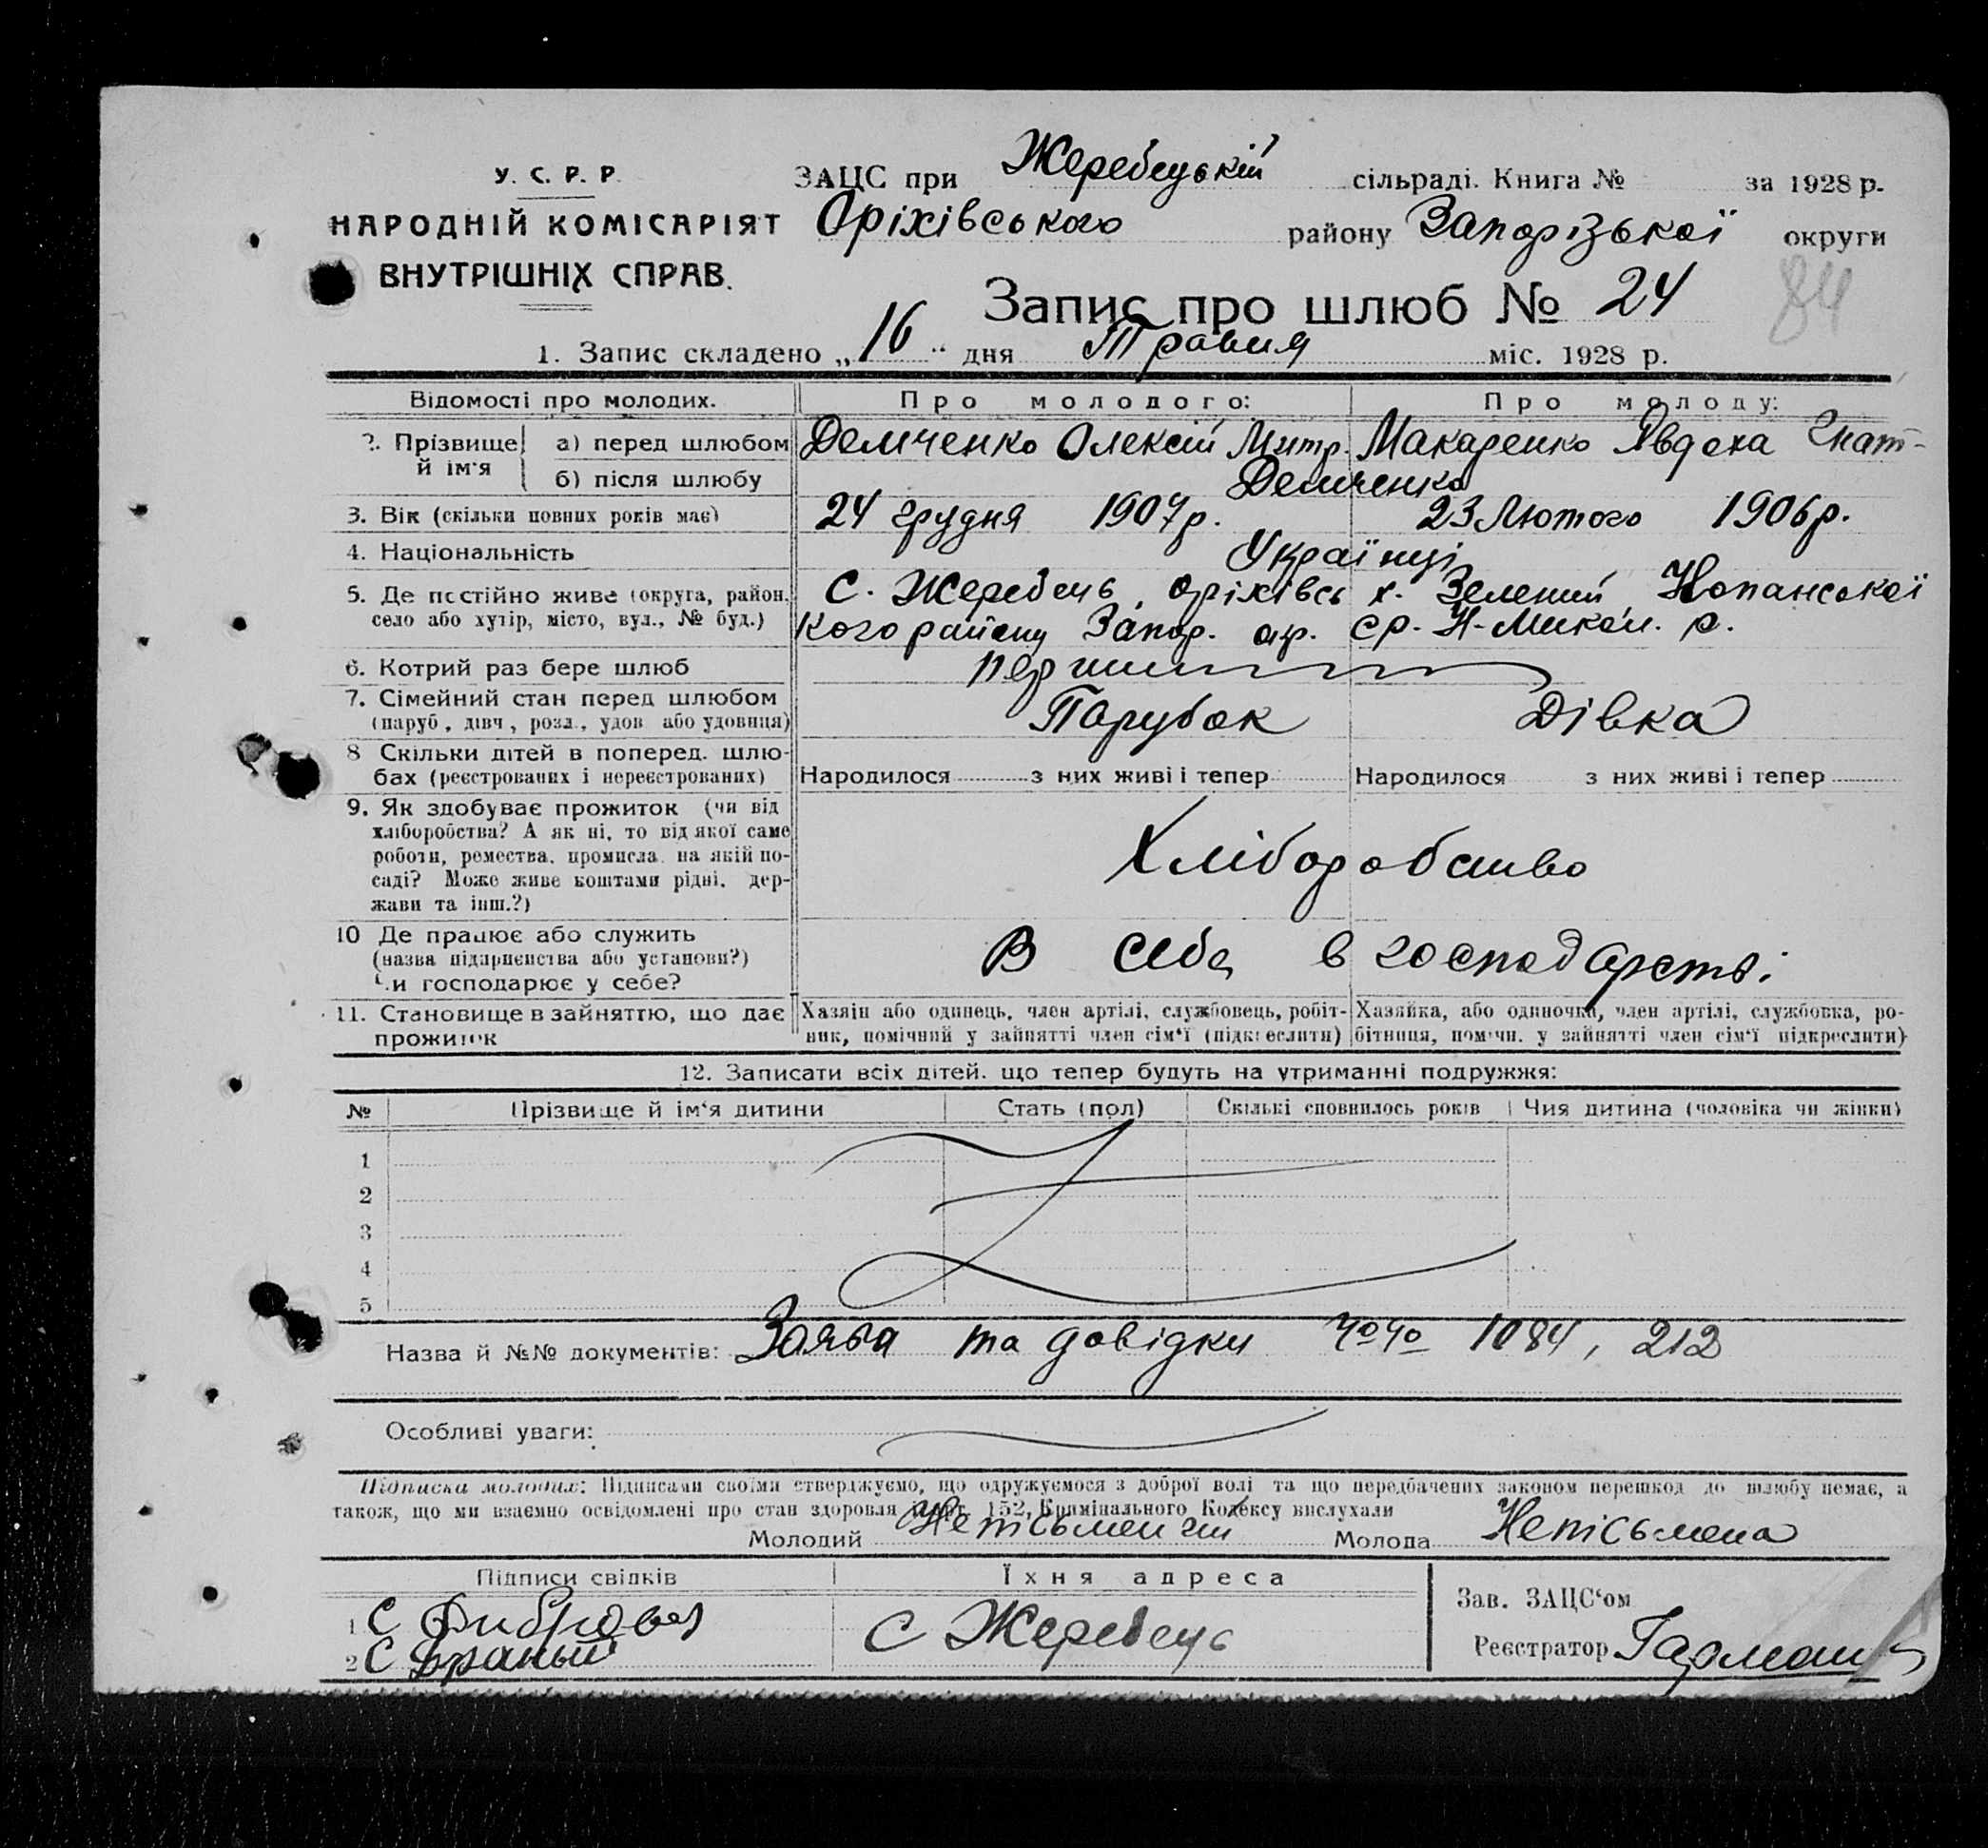 У. С. Р. Р.
НАРОДНІЙ КОМІСАРІЯТ
ВНУТРІШНІХ СПРАВ.
ЗАЦС при Жеребецькій сільраді. Книга № за 1928 р.
Оріхівського району Запорізької округи
Запис про шлюб № 24
84
1. Запис складено „16“ дня Травня міс. 1928 р.
Відомості про молодих. Про молодого: Про молоду:
2. Прізвище й ім'я
а) перед шлюбом Демченко Олексій Митр. Макаренко Явдоха Гнат-
б) після шлюбу Демченко
3. Вік (скільки повних років має) 24 грудня 1907 р. 23 Лютого 1906 р.
4. Національність Українці
5. Де постійно живе (округа, район, с. Жеребець, Оріхівсь х. Зелений Копанської
село або хутір, місто, вул., № буд.) кого району Запор. окр. ср. Н-Микол. р.
6. Котрий раз бере шлюб перший
7. Сімейний стан перед шлюбом Парубок Дівка
(паруб., дівч., розл., удов. або удовиця)
8 Скільки дітей в поперед. шлю-
бах (реєстрованих і нереєстрованих) Народилося з них живі і тепер Народилося з них живі і тепер
9. Як здобуває прожиток (чи від
хліборобства? А як ні, то від якої саме
роботи, ремества, промисла, на якій по-
саді? Може живе коштами рідні, дер-
жави та інш.?)
Хліборобство
10 Де працює або служить В себе в господарстві
(назва підприємства або установи?)
Чи господарює у себе?
11. Становище в зайняттю, що дає Хазяїн або одинець, член артілі, службовець, робіт- Хазяйка, або одиночка, член артілі, службовка, ро-
прожиток ник, помічний у зайнятті член сім'ї (підкреслити) бітниця, помічн. у зайнятті член сім'ї підкреслити)
12. Записати всіх дітей, що тепер будуть на утриманні подружжя:
№ Прізвище й ім'я дитини Стать (пол) Скількі сповнилось років Чия дитина (чоловіка чи жінки)
1
2
3
4
5
Назва й №№ документів: Заява та довідки 1084, 212
Особливі уваги:
Підписка молодих: Підписами своїми стверджуємо, що одружуємося з доброї волі та що передбачених законом перешкод до шлюбу немає, а
також, що ми взаємно освідомлені про стан здоровля і арт. 152, Крямінального Кодексу вислухали
Молодий Неписьмений Молода Неписьмена
Підписи свідків Їхня адреса
1 С
2 С
С Жеребець
Зав. ЗАЦС'ом
Реєстратор Гармаш